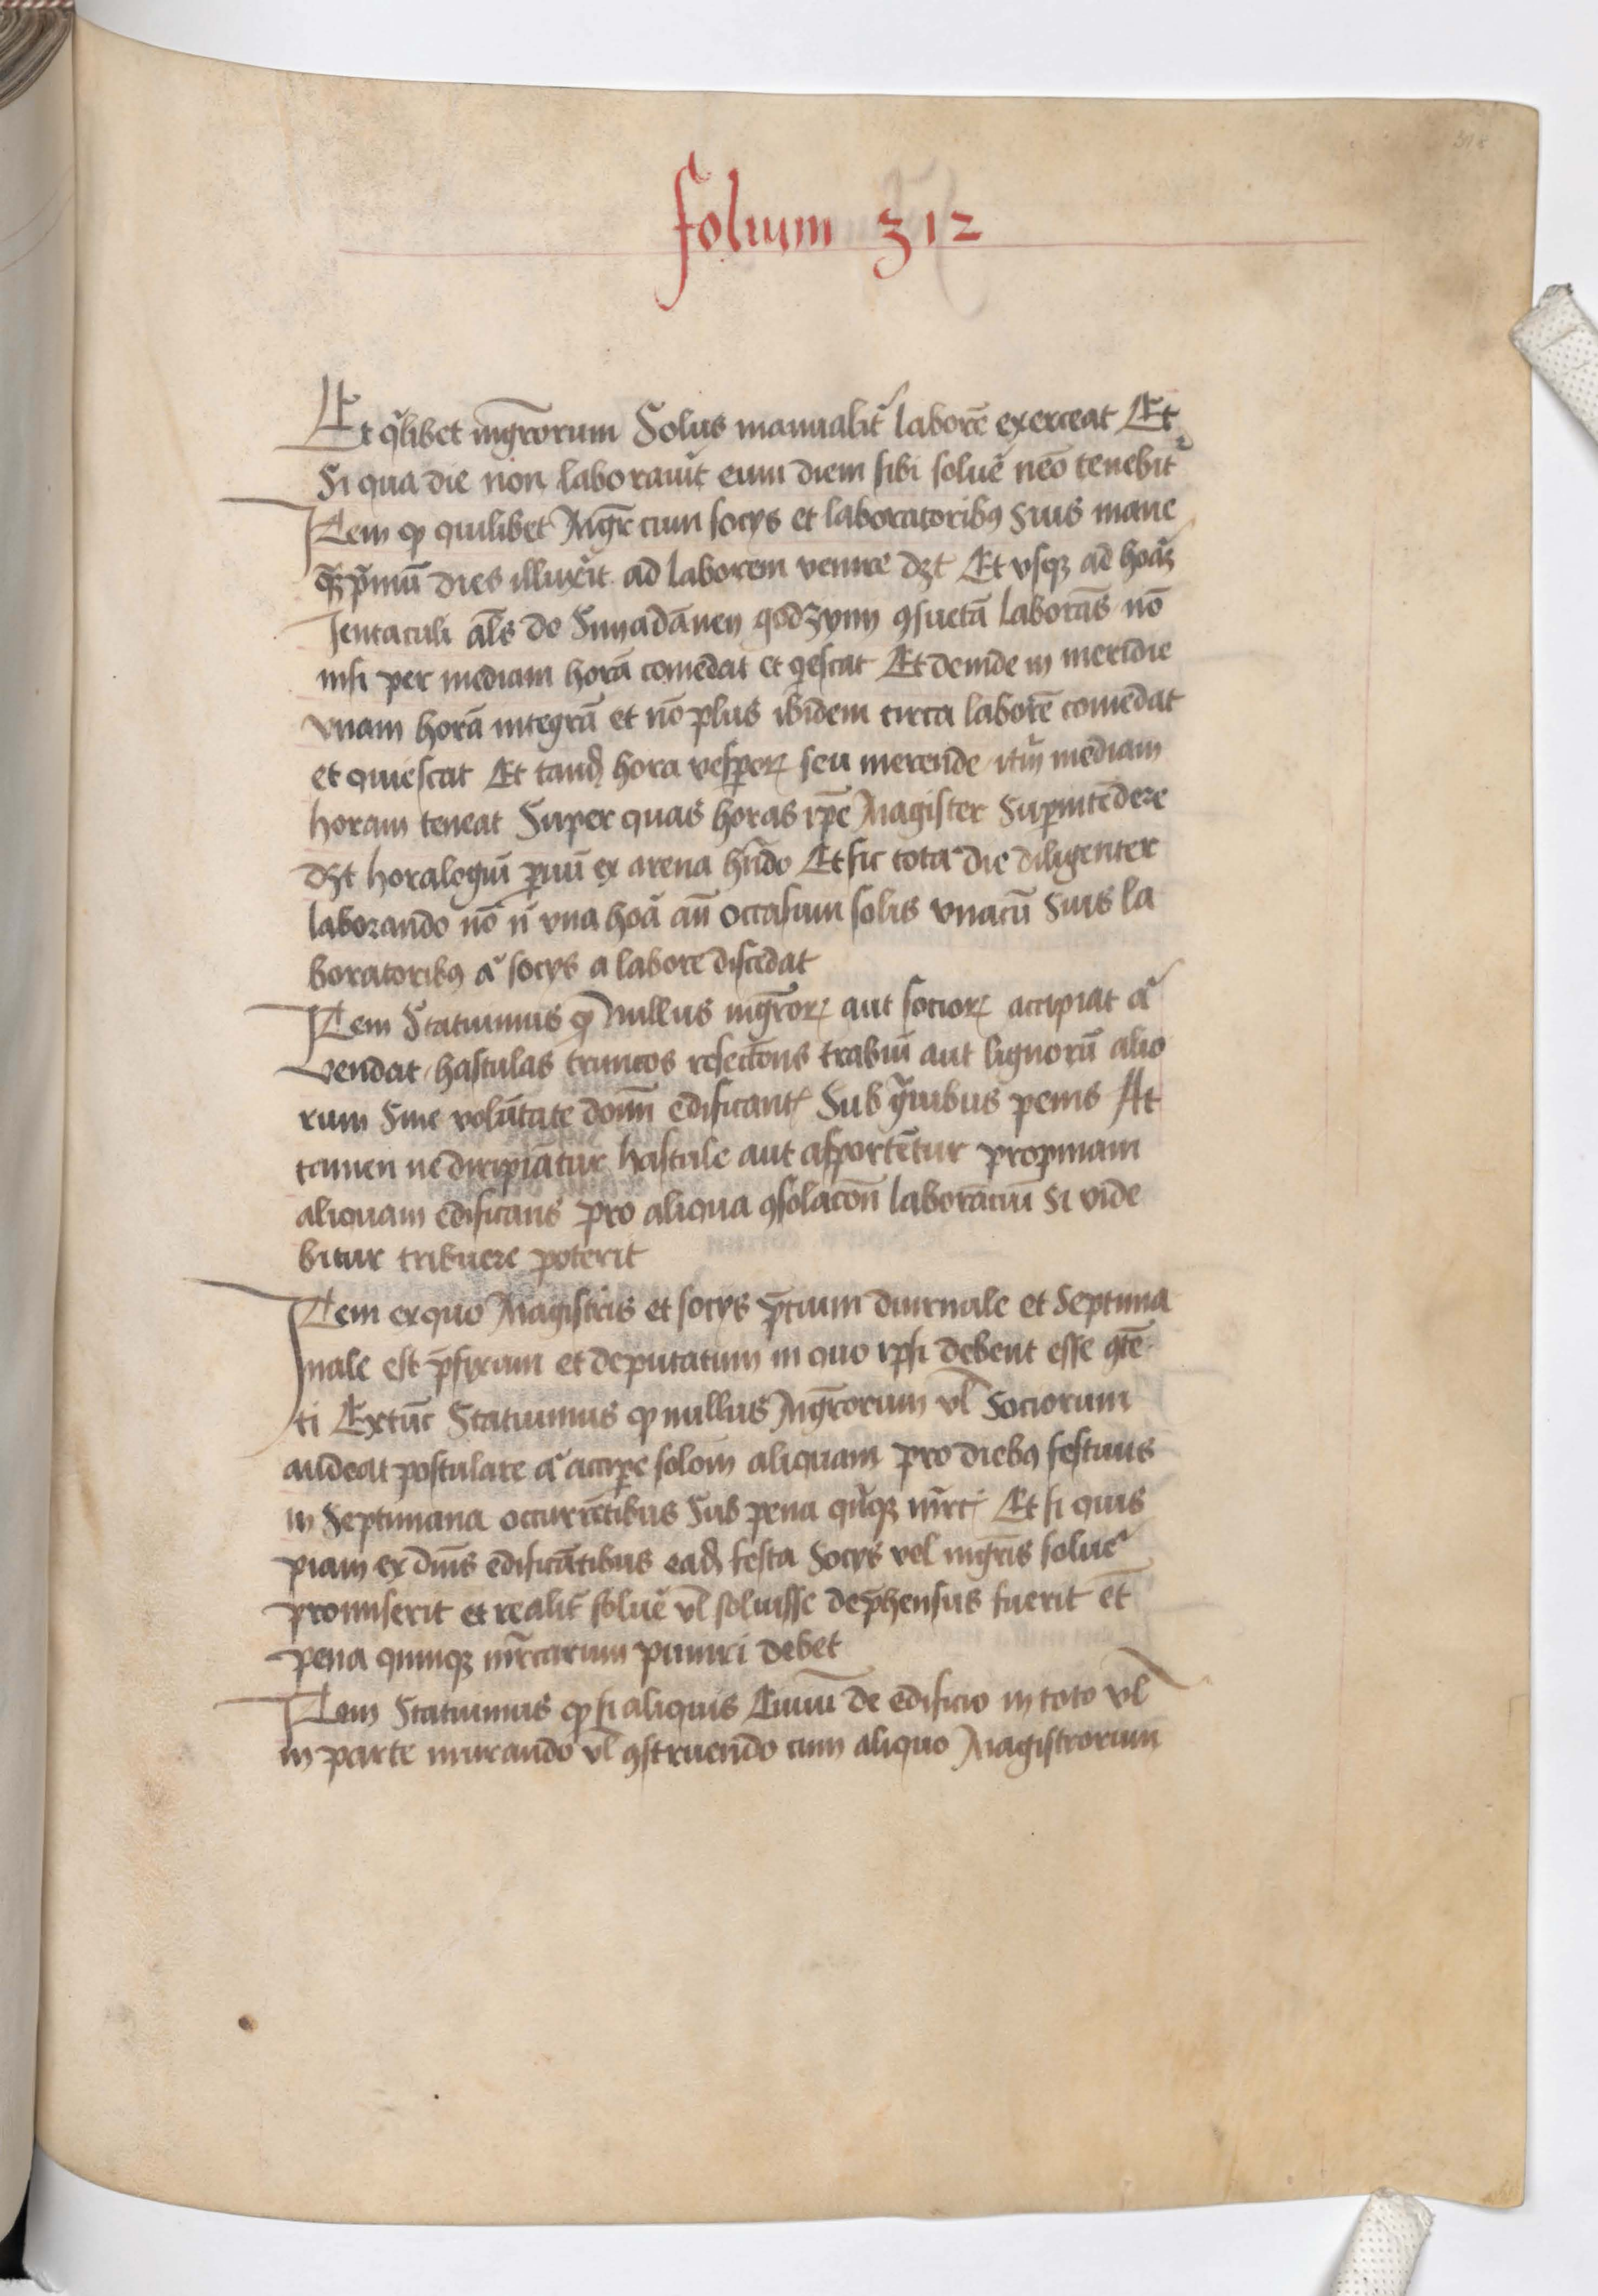 folium 312
Et q̃libet mgr̃orum Solus manualit᷑ laborē exerceat Et
Si qua die non laborauit᷑ eum diem sibi solue᷑ neō tenebit᷑
Item ꝙ quilibet Mgr̃ cum socÿs et laboratoribꝯ Suis mane
q̃ꝫp̃mū dies illuxe᷑it ad laborem venire dꝫt Et vsqꝫ ad hoãꝫ
Jentaculi al̃s do Snyadāney godzynÿ ꝯsuetā laborās nō
nisi per mediam horā comēdat et q̇escat Et deinde in meridie
vnam horā integrā et nō plus ibidem circa laborē comēdat
et quiescat Et tand᷑ hora vesꝑoꝝ seu merende itm̄ mediam
horam teneat Super quas horas ip̄e Magister Suꝑintēdere
dꝫt horalogiū ꝑuū ex arena hn̄do Et sic tota die diligenter
laborando nō n̄ vna hoã an̄ occasum solis vnacū Suis la
boratoribꝯ a᷑ socÿs a labore discedat
Item Statuimus ꝙ Nullus mgr̃oꝝ aut socioꝝ accipiat a᷑
vendat hastulas truncos resectōns trabiū aut lignorū alio
rum Sine volūtate domī edificant᷑ Sub g̃uibus penis At
tamen ne diripiātur hastule aut asportētur propinam
aliquam edificans pro aliqua ꝯsolacōn laborāciū Si vide
bitur tribuere poterit
Item exquo Magistris et socÿs p̃cium diurnale et Septima
nale est p̃fixum et deputatum in quo ipsi debent esse ꝯtē
ti Extūc Statuimus ꝙ nullus Mgr̃orum vl̃ Sociorum
audeat postulare a᷑ acciꝑe solōm aliquam pro diebꝯ festiuis
in Septimana occurrētibus Sub pena qn̄qꝫ mr̃cꝝ Et si quis
piam ex dn̄is edificātibus ead᷑ festa Socÿs vel mgr̃is solue᷑
promiserit et realit᷑ solue᷑ vl̃ soluisse dep̃hensus fuerit et̄
pena quinqꝫ mr̃carum puniri debet
Item Statuimus ꝙ si aliquis Ciuiū de edificio in toto vl̃
in parte murando vl̃ ꝯstruendo cum aliquo Magistrorum